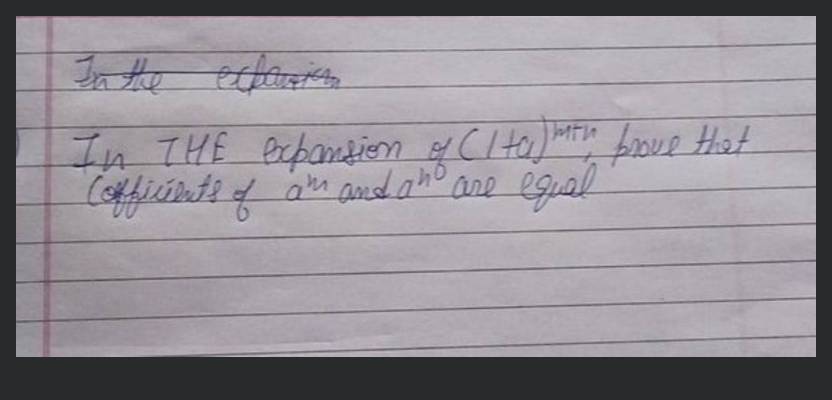 In the expansion
In THE expansion of (1+a)^m+n, prove that
Cofficients of a^m and a^n are equal